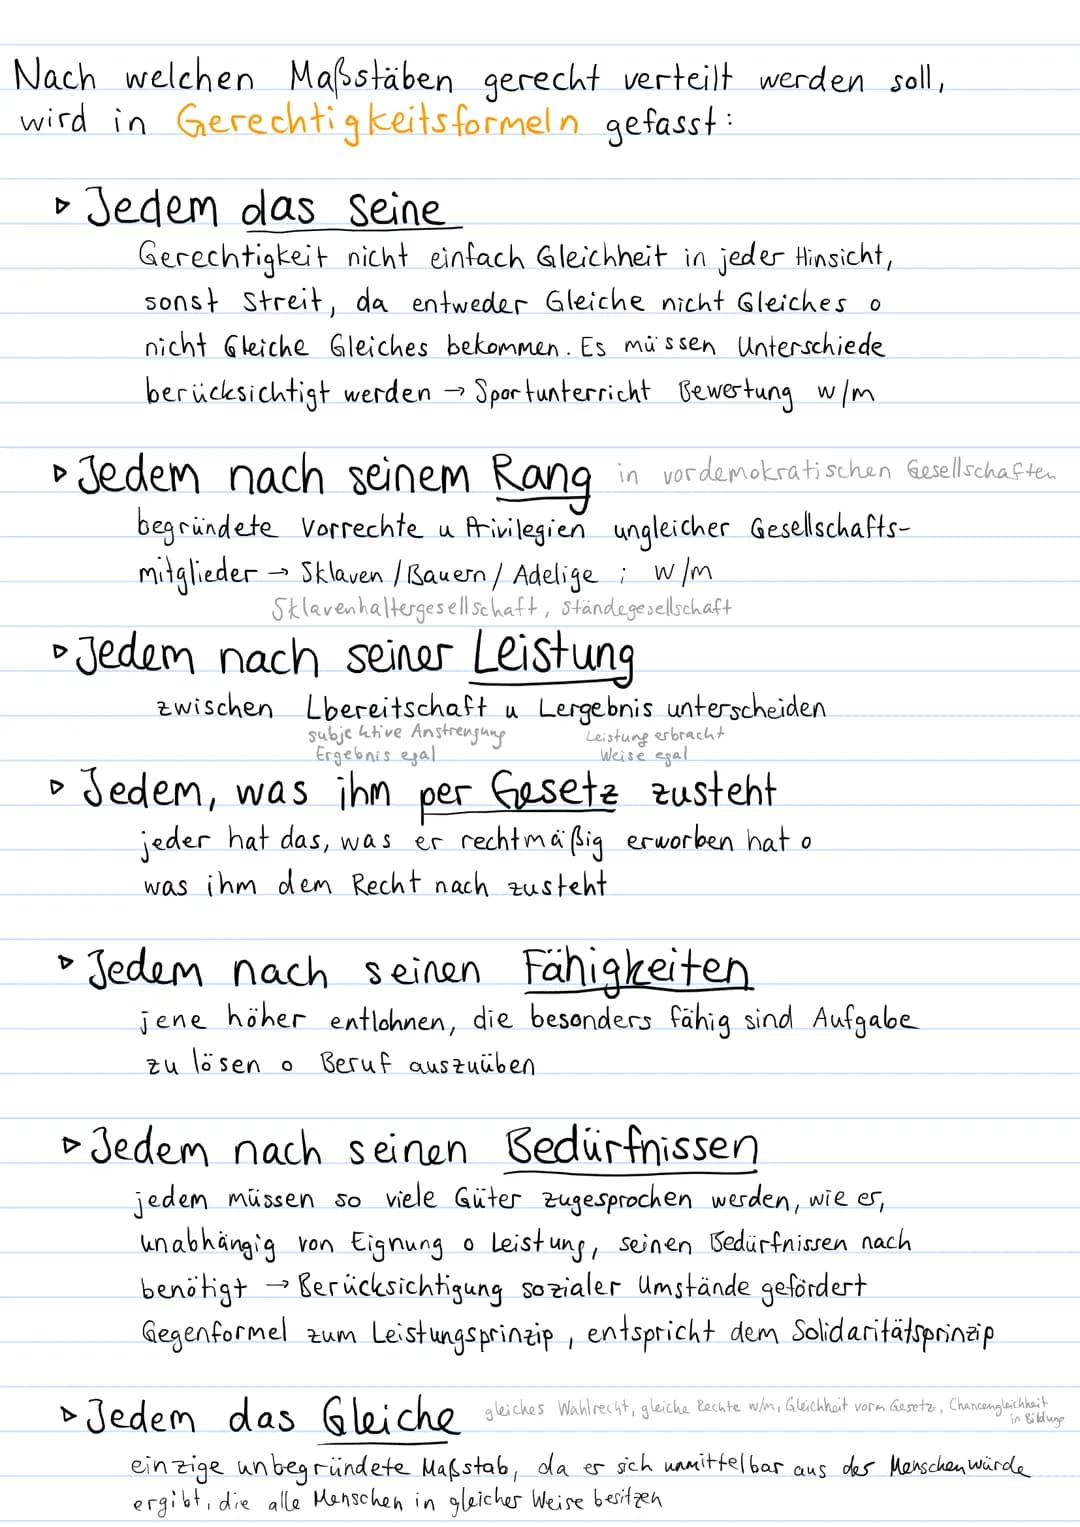 Nach welchen Maßstäben gerecht verteilt werden soll,
wird in Gerechtigkeitsformeln gefasst:
▹ Jedem das seine
Gerechtigkeit nicht einfach Gleichheit in jeder Hinsicht,
sonst Streit, da entweder Gleiche nicht Gleiches o
nicht Gleiche Gleiches bekommen. Es müssen Unterschiede
berücksichtigt werden → Sportunterricht Bewertung w/m
▹ Jedem nach seinem Rang in vordemokratischen Gesellschaften
begründete Vorrechte u Privilegien ungleicher Gesellschafts-
mitglieder → Sklaven / Bauern / Adelige ; w/m
Sklavenhaltergesellschaft, Ständegesellschaft
▹ Jedem nach seiner Leistung
zwischen Lbereitschaft u Lergebnis unterscheiden
subjektive Anstrengung Leistung erbracht
Ergebnis egal Weise egal
▹ Jedem, was ihm per Gesetz zusteht
jeder hat das, was er rechtmäßig erworben hat o
was ihm dem Recht nach zusteht
▹ Jedem nach seinen Fähigkeiten
jene höher entlohnen, die besonders fähig sind Aufgabe
zu lösen o Beruf auszuüben
▹ Jedem nach seinen Bedürfnissen
jedem müssen so viele Güter zugesprochen werden, wie er,
unabhängig von Eignung o Leistung, seinen Bedürfnissen nach
benötigt → Berücksichtigung sozialer Umstände gefördert
Gegenformel zum Leistungsprinzip, entspricht dem Solidaritätsprinzip
▹ Jedem das Gleiche gleiches Wahlrecht, gleiche Rechte w/m, Gleichheit vorm Gesetz, Chancengleichheit
in Bildung
einzige unbegründete Maßstab, da er sich unmittelbar aus der Menschenwürde
ergibt, die alle Menschen in gleicher Weise besitzen